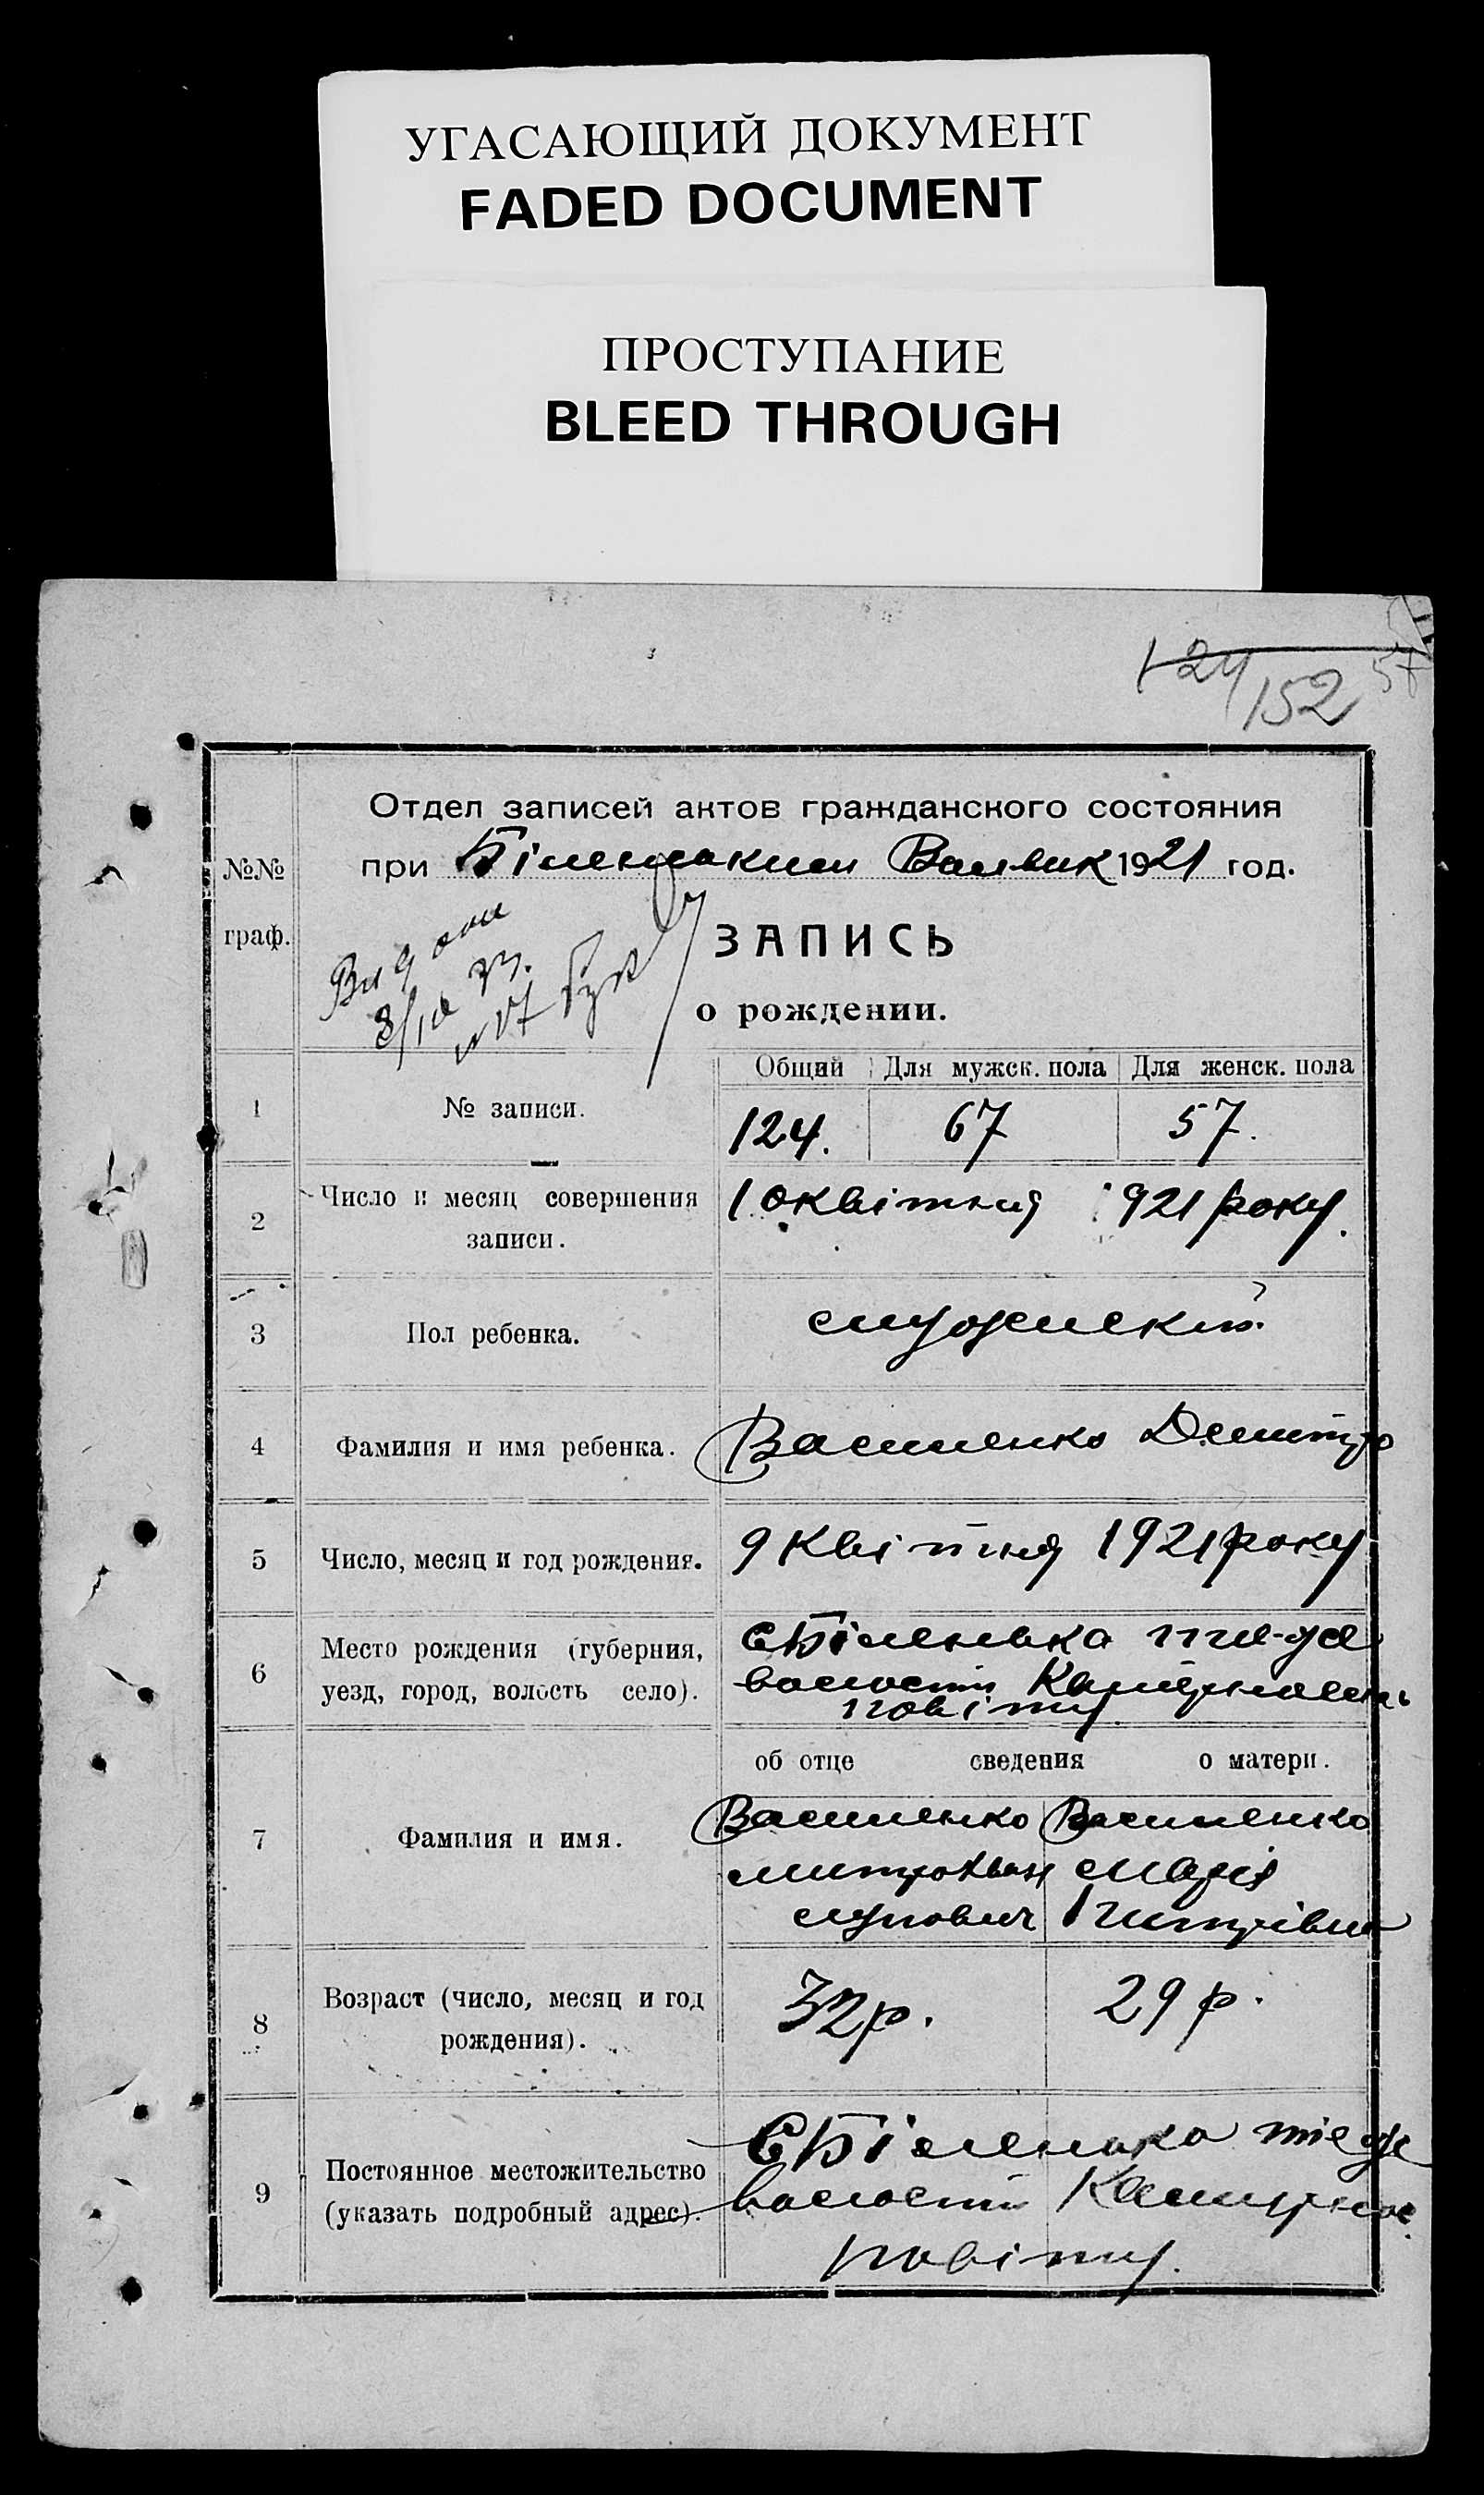 УГАСАЮЩИЙ ДОКУМЕНТ
FADED DOCUMENT
ПРОСТУПАНИЕ
BLEED THROUGH
124
152
57
Отдел записей актов гражданского состояния
при Біленьським Волвик 1921 год.
№№
граф.
ЗАПИСЬ
о рождении.
Общий Для мужск. пола Для женск. пола
1 № записи. 124. 67 57.
2 Число и месяц совершения
записи.
10 квітня 1921 року.
3 Пол ребенка. мужеский
4 Фамилия и имя ребенка. Василенко Дмитро
5 Число, месяц и год рождения. 9 Квітня 1921 року
6 Место рождения (губерния,
уезд, город, волость село).
с Біленька
волости
повіту
об отце сведения о матери.
7 Фамилия и имя.
Василенко Василенко
Митрофан Марія
Петрівна
8 Возраст (число, месяц и год
рождения).
32 р. 29 р.
9 Постоянное местожительство
(указать подробный адрес).
С Біленька
волости
повіту.